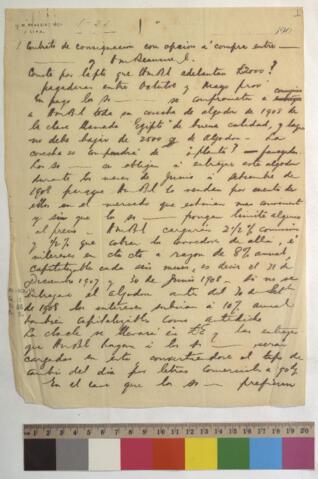 Contrato de consignacion con opcion a compra entre
y Wm Beausire &
Conste por lapte que WmBl adelantan £2000?
pagaderas entre Octubre y Mayo prox
En pago los Ss — se comprometen a
a WmBl toda su cosecha de algodon de 1908 de
la clase llamada Egipto de buena calidad, y que
no debe bajar de 2000 qq de algodon — La
cosecha es
los Ss — se obligan a entregar este algodon
durante los meses de Junio a Setiembre de
1908 para que WmBl lo vendan por cuenta de
ellos en el mercado que estimen mas conveniente
y sin que los Ss — pongan limite alguno
al precio. WmBl cargarán 2½% comision
y ½% que cobra los corredores de alla, é
intereses en cta cte a razon de 8% anual,
capitalizable cada seis meses, es decir el 31 de
Diciembre 1907 y 30 de Junio 1908 — Si no se
entregase el algodon antes del 30 de Sept
de 1908 los intereses subirán á 10% anual
tambien capitalizables como antedicho
La cta cte se llevará en £E? las entregas
que WmBl hagan á los Ss — seran
cargadas en esta convirtiendose al tipo de
cambio del dia por letras comerciales a 90 d/v
En el caso que los Ss — prefieran
1 2 3 4 5 6 7 8 9 10 11 12 13 14 15 16 17 18 19 20